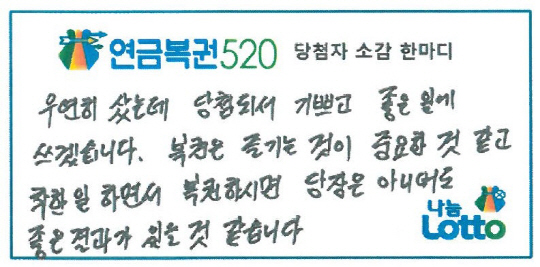 연금복권520 당첨자 소감 한마디
우연히 샀는데 당첨되서 기쁘고 좋은 일에
쓰겠습니다. 복권은 즐기는 것이 중요한 것 같고
착한일 하면서 복권하시면 당장은 아니더라도
좋은 결과가 있을 것 같습니다
나눔
Lotto